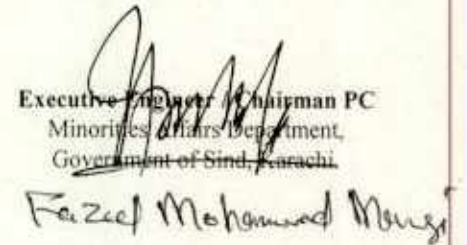 Executive Engineer / Chairman PC
Minorities Affairs Department,
Government of Sind, Karachi.
Mohammad